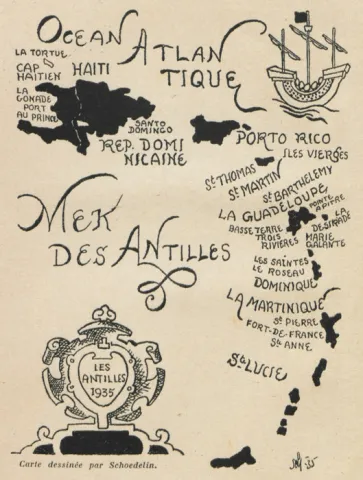 OCEAN ATLAN
TIQUE
LA TORTUE
CAP
HAITIEN
HAITI
LA
GONADE
PORT
AU PRINCE
SANTO
DOMINGO
REP. DOMI
NICAINE
PORTO RICO
ILES VIERGES
St THOMAS
St MARTIN
St BARTHÉLEMY
LA GUADELOUPE
POINTE
A PITRE
BASSE TERRE
TROIS
RIVIÈRES
LA
DESIRADE
MARIE
GALANTE
MER
DES ANTILLES
LES SAINTES
LE ROSEAU
DOMINIQUE
LA MARTINIQUE
St PIERRE
FORT-DE-FRANCE
Ste ANNE
Ste LUCIE
LES
ANTILLES
1935
Carte dessinée par Schoedelin.